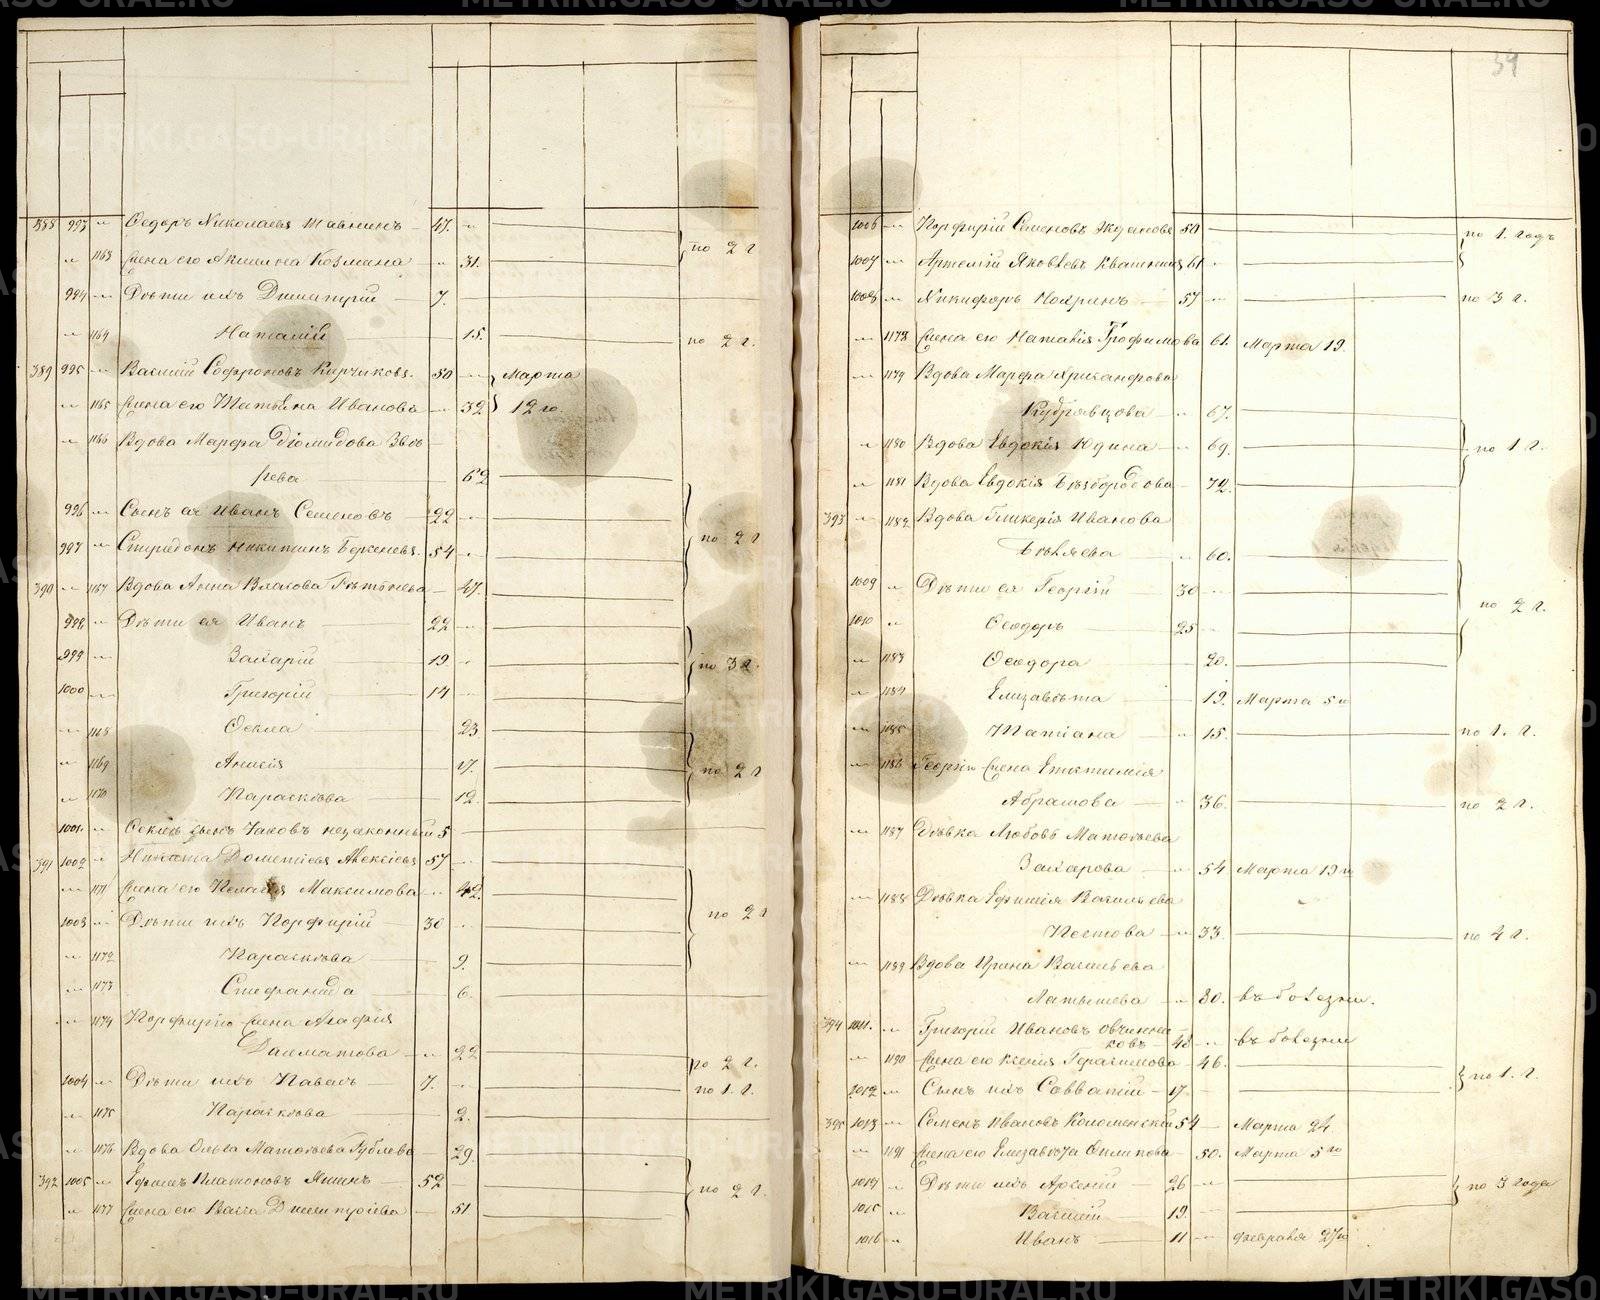 34
388 993 " Ѳедоръ Николаевъ 47. "
" 1163 Жена его Акилина Козмина " 31. по 2 г
994 " Дѣти ихъ Димитрій 7.
" 1164 Наталій 15. по 2 г.
389 995 " Василій Софроновъ Кирчиковъ. 50 " Марта
" 1165 Жена его Татьяна Иванова " 32 12 го.
" 1166 Вдова Марфа Діомидова Звѣ
рева 62
996 " Сынъ ея Иванъ Семеновъ 22 "
997 " Спиридонъ Никитинъ 54 " по 2 г
390 " 1167 Вдова Анна Власова 47.
998 " Дѣти ея Иванъ 22 "
999 " Захарій 19 " по 3 г.
1000 " Григорій 14 "
" 1168 Ѳекла 23
" 1169 Анисія 17. по 2 г
" 1170 Параскева 12.
1001. " Ѳеклы сынъ Іаковъ незаконный 5
391 1002 " Никита Дометіевъ Алексѣевъ 57 "
" 1171 Жена его Пелагія Максимова " 42.
1003 " Дѣти ихъ Порфирій 30 " по 2 г
" 1172 Параскева 9.
" 1173 Стефанида 6.
" 1174 Порфирія жена Агафія
Далматова " 22 по 2 г.
1004 " Дѣти ихъ Павелъ 7. " по 1. г.
" 1175 Параскева 2.
" 1176 Вдова Ольга Матѳѣева 29.
392 1005 " Ефимъ Платоновъ 52 по 2 г.
" 1177 Жена его Васса Димитріева 51
1006 " Порфирій Семеновъ Ждановъ 50 по 1. годъ
1007 " Артемій Яковлевъ Квашнинъ 61 "
1008 " Никифоръ Нохринъ 57 " по 3 г.
" 1178 Жена его Наталія Трофимова 61. Марта 19.
" 1179 Вдова Марфа Хрисанфова
Кудрявцова " 67.
" 1180 Вдова Евдокія Юдина " 69. по 1 г.
" 1181 Вдова Евдокія Безбородова 72.
393 " 1182 Вдова Гликерія Иванова
Бѣляева " 60.
1009 " Дѣти ея Георгій 30 " по 2 г.
1010 " Ѳеодоръ 25 "
" 1183 Ѳеодора 20.
" 1184 Елизавета 19. Марта 5 го
" 1185 Татіана " 15. по 1. г.
" 1186 Георгія жена
Абрамова " 36. по 2 г.
" 1187 Дѣвка Любовь Матѳѣева
Захарова " 54 Марта 19 го
" 1188 Дѣвка Ефимія Васильева
Пестова " 33. по 4 г.
" 1189 Вдова Ирина Васильева
Латышева " 80. въ болѣзни.
394 1011. " Григорій Ивановъ Овчинни
ковъ 48 " въ болѣзни
" 1190 Жена его Ксенія Герасимова 46. по 1. г.
1012 " Сынъ ихъ Савватій 17.
395 1013 " Семенъ Ивановъ Коломенскій 54 Марта 24
" 1191 Жена его Елизавета Филипова 50. Марта 5 го
1014 " Дѣти ихъ Арсеній 26 " по 3 года
1015 " Василій 19.
1016 " Иванъ 11 " февраля 27 го
METRIKI.GASO-URAL.RU